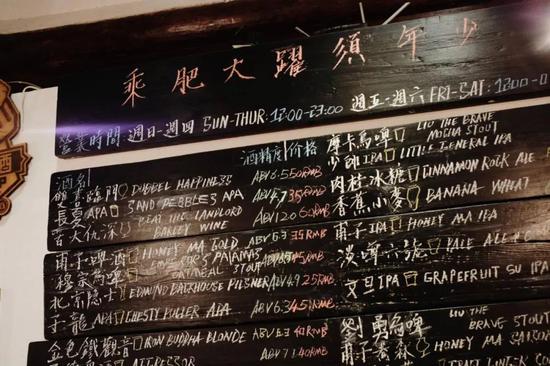 乘肥大躍須年少
營業時間 週日-週四 SUN-THUR: 12:00-23:00 週五-週六 FRI-SAT: 12:00-0
酒名 酒精度 价格
雙喜臨門 DUBBEL HAPPINESS ABV 6.5 50RMB
長夏 APA SAND PEBBLES APA ABV 4.7 35RMB
苦大仇深 BEAT THE LANDLORD BARLEY WINE ABV 12.0 60RMB
甫子啤酒 HONEY MA GOLD ABV 6.3 35RMB
EMPEROR'S PAJAMAS OATMEAL STOUT ABV 5.8 45RMB
北京隱士 EDMUND BACKHOUSE PILSNER ABV 4.9 25RMB
子龍 APA CHESTY PULLER APA ABV 6.3 45RMB
金色鐵觀音 IRON BUDDHA BLONDE ABV 6.3 40RMB
AGGRESSOR ABV 7.1 40RMB
摩卡烏啤 LIU THE BRAVE MOCHA STOUT
少帥 IPA LITTLE GENERAL IPA
肉桂冰糖 CINNAMON ROCK ALE
香蕉小麥 BANANA WHEAT
甫子 IPA HONEY MA IPA
淡啤六號 PALE ALE
文旦 IPA GRAPEFRUIT SU IPA
劉勇烏啤 LIU THE BRAVE STOUT
HONEY MA SAISON